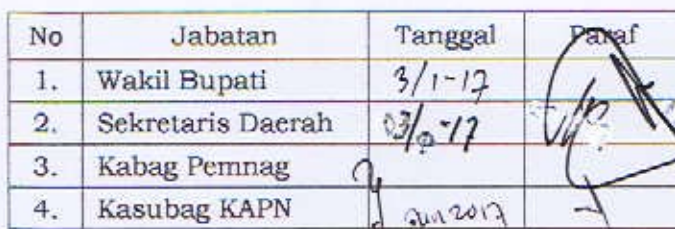 No Jabatan Tanggal Paraf
1. Wakil Bupati 3/1-17
2. Sekretaris Daerah
3. Kabag Pemnag
4. Kasubag KAPN 2017